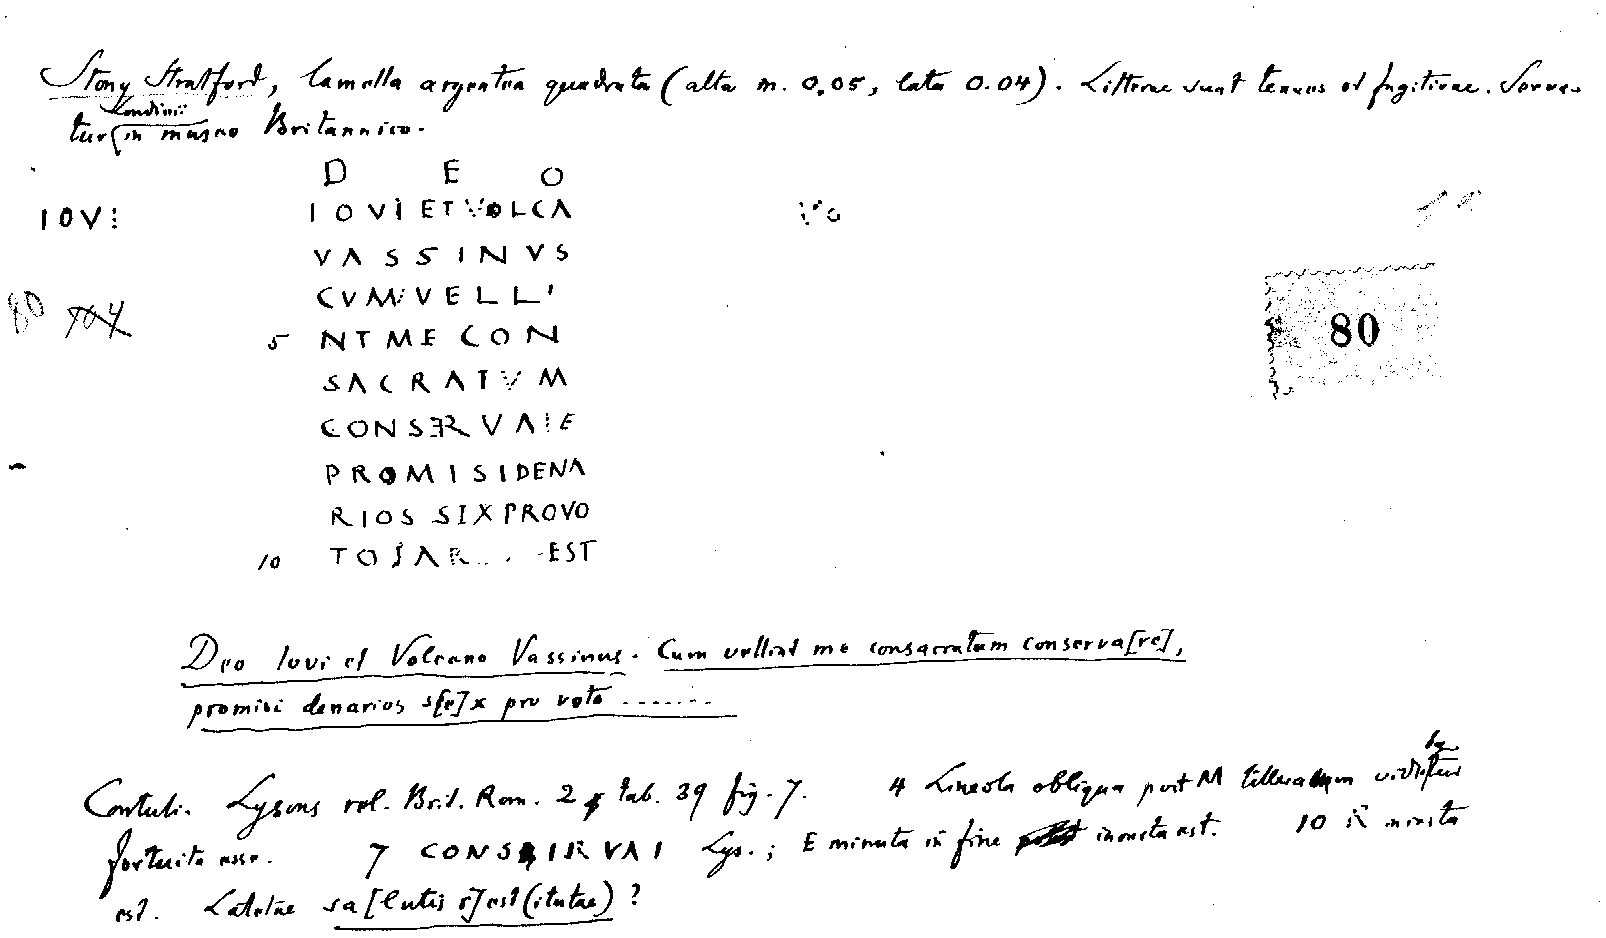 Stony Stratford, lamella argentea quadrata (alta m. 0.05, lata 0.04). Litterae sunt tenues et fugitivae. Serva-
tur Londinii in museo Britannico.
D E O
IOVI IOVI ET VOLCA Vo
VASSINVS
CVM VELLI
80 704 5 NT ME CON 80
SACRATVM
CONSERVAIE
PROMISI DENA
RIOS SIX PRO VO
10 TO SAR... EST
Deo Iovi et Volcano Vassinus. Cum vellint me consacratum conserva[re],
promisi denarios s[e]x pro voto .......
Contuli. Lysons rel. Brit. Rom. 2, tab. 39 fig. 7. 4 Lineola obliqua post M litteram videtur
fortuita esse. 7 CONSIIRVAI Lys.; E minuta in fine incerta est. 10 R incerta
est. Latetne sa[lutis r]est(itutae)?